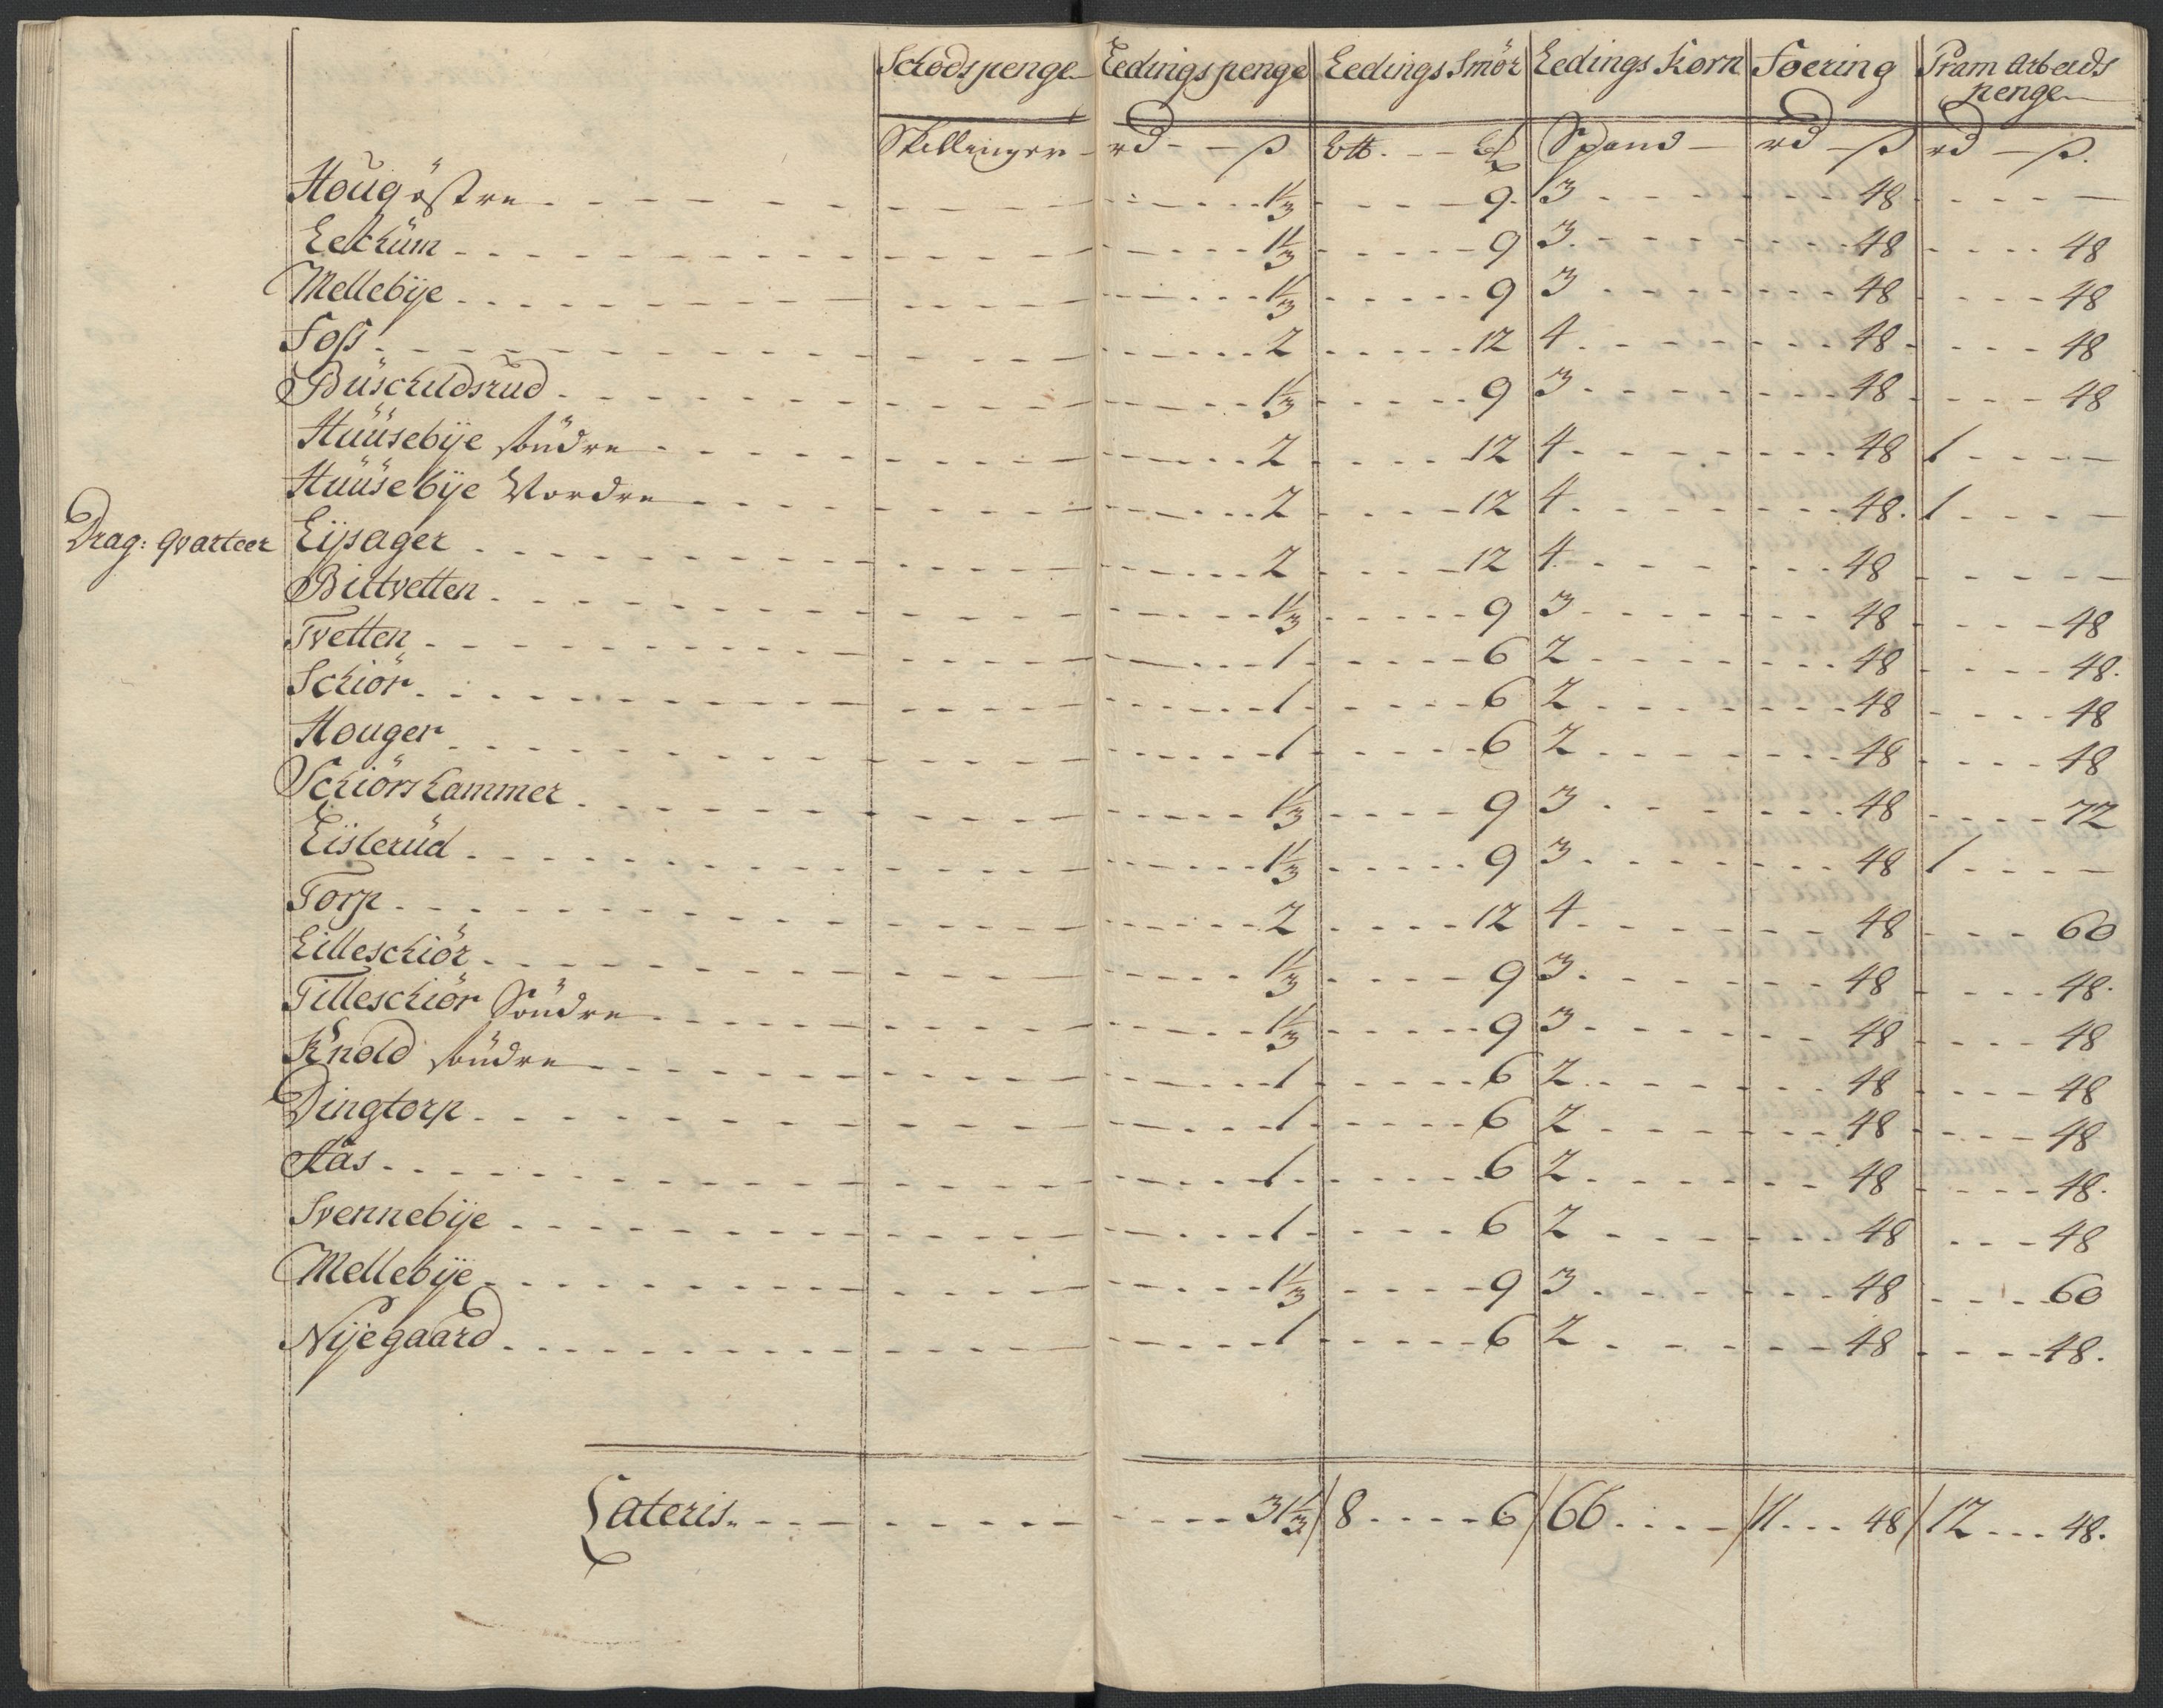 Schodspenge Ledingspenge Ledings Smör Ledings Korn Foering Pram Arbeids penge
Skillinger rd ß Ott. ℔ Spand rd ß rd ß.
Houg östre 1⅓ 9 3 48 —
Leckum 1⅓ 9 3 48 48
Mellebÿe 1⅓ 9 3 48 48
Foss 2 12 4 48 48
Buschildsrud 1⅓ 9 3 48 48
Huusebÿe söndre 2 12 4 48 1 —
Huusebÿe Nordre 2 12 4 48. 1 —
Drag: qvarteer Eijsager 2 12 4 48 —
Bittvetten 1⅓ 9 3 48 48
Tvetten 1 6 2 48 48.
Schiör 1 6 2 48 48
Houger 1 6 2 48 48
Schiörshammer 1⅓ 9 3 48 72
Eisterud 1⅓ 9 3 48 1 —
Torp 2 12 4 48 60
Lilleschiör 1⅓ 9 3 48 48.
Tilleschiör Söndre 1⅓ 9 3 48 48
Knold söndre 1 6 2 48 48
Dingtorp 1 6 2 48 48
Aas 1 6 2 48 48.
Svennebÿe 1 6 2 48 48
Mellebÿe 1⅓ 9 3 48 60
Nÿegaard 1 6 2 48 48.
Lateris. 31⅓ / 8 6 / 66 / 11 48 / 12 48.